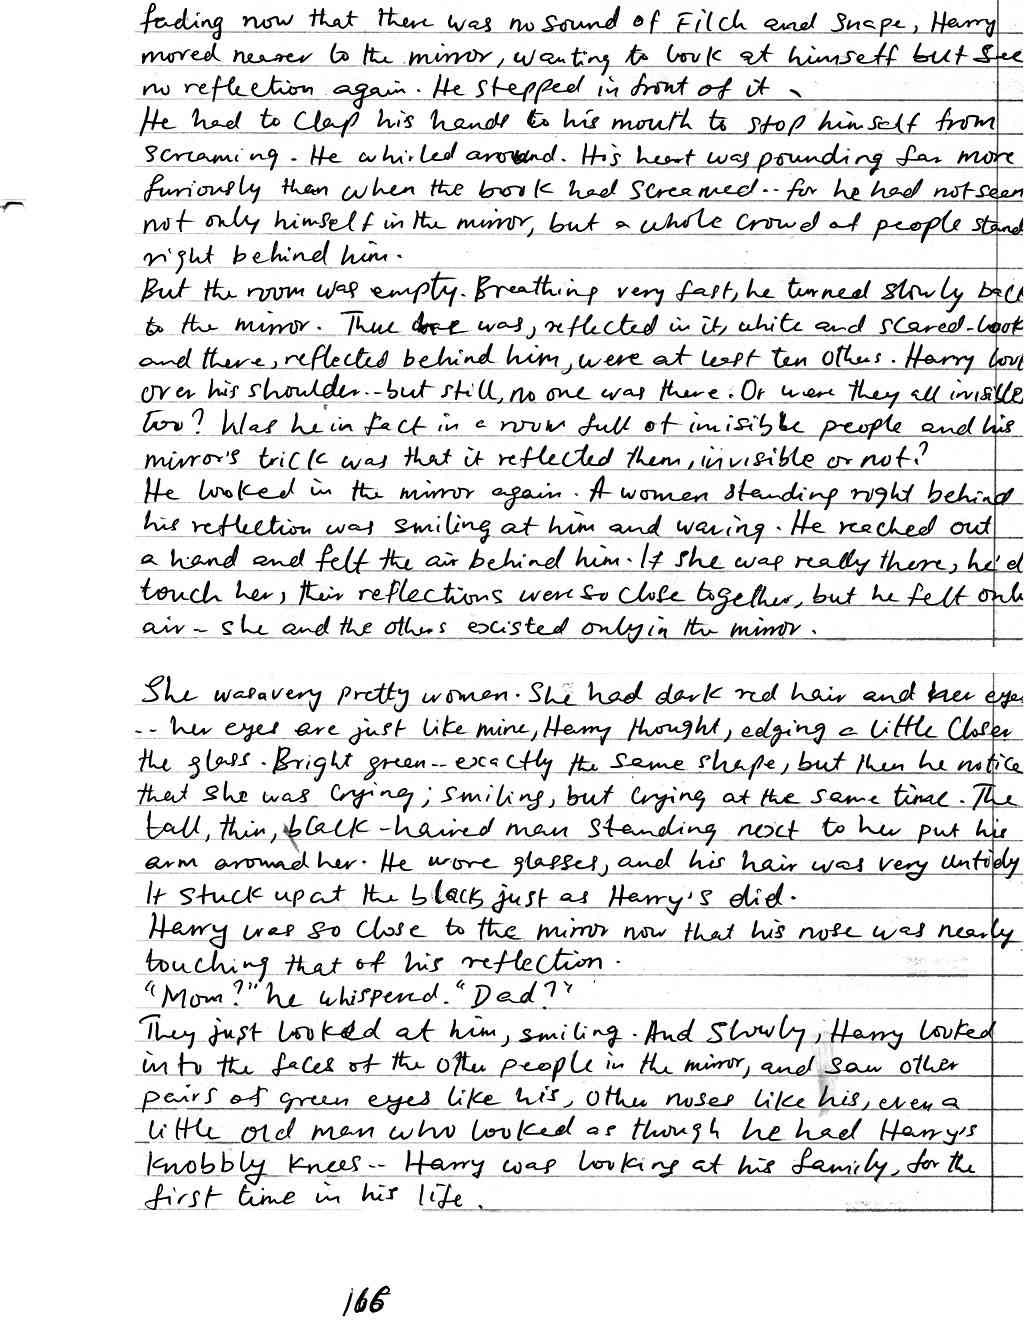 fading now that there was no sound of Filch and Snape, Harry
moved nearer to the mirror, wanting to look at himself but see
no reflection again. He stepped in front of it
He had to clap his hands to his mouth to stop himself from
screaming. He whirled around. His heart was pounding far more
furiously than when the book had screamed-- for he had not seen
not only himself in the mirror, but a whole crowd of people stand
right behind him.
But the room was empty. Breathing very fast, he turned slowly back
to the mirror. There was, reflected in it, white and scared-look
and there, reflected behind him, were at least ten others. Harry look
over his shoulder--but still, no one was there. Or were they all invisible
too? Was he in fact in a room full of invisible people and his
mirror's trick was that it reflected them, invisible or not?
He looked in the mirror again. A women standing right behind
his reflection was smiling at him and waving. He reached out
a hand and felt the air behind him. If she was really there, he'd
touch her, their reflections were so close together, but he felt only
air - she and the others excisted only in the mirror.
She was a very pretty women. She had dark red hair and her eyes
-- her eyes are just like mine, Harry thought, edging a little closer
the glass. Bright green-- exactly the same shape, but then he notice
that she was crying; smiling, but crying at the same time. The
tall, thin, black-haired man standing next to her put his
arm around her. He wore glasses, and his hair was very untidy
It stuck up at the black, just as Harry's did.
Harry was so close to the mirror now that his nose was nearly
touching that of his reflection.
"Mom?" he whispered. "Dad?"
They just looked at him, smiling. And slowly, Harry looked
into the faces of the other people in the mirror, and saw other
pairs of green eyes like his, other noses like his, even a
little old man who looked as though he had Harry's
knobbly knees-- Harry was looking at his family, for the
first time in his life.
166